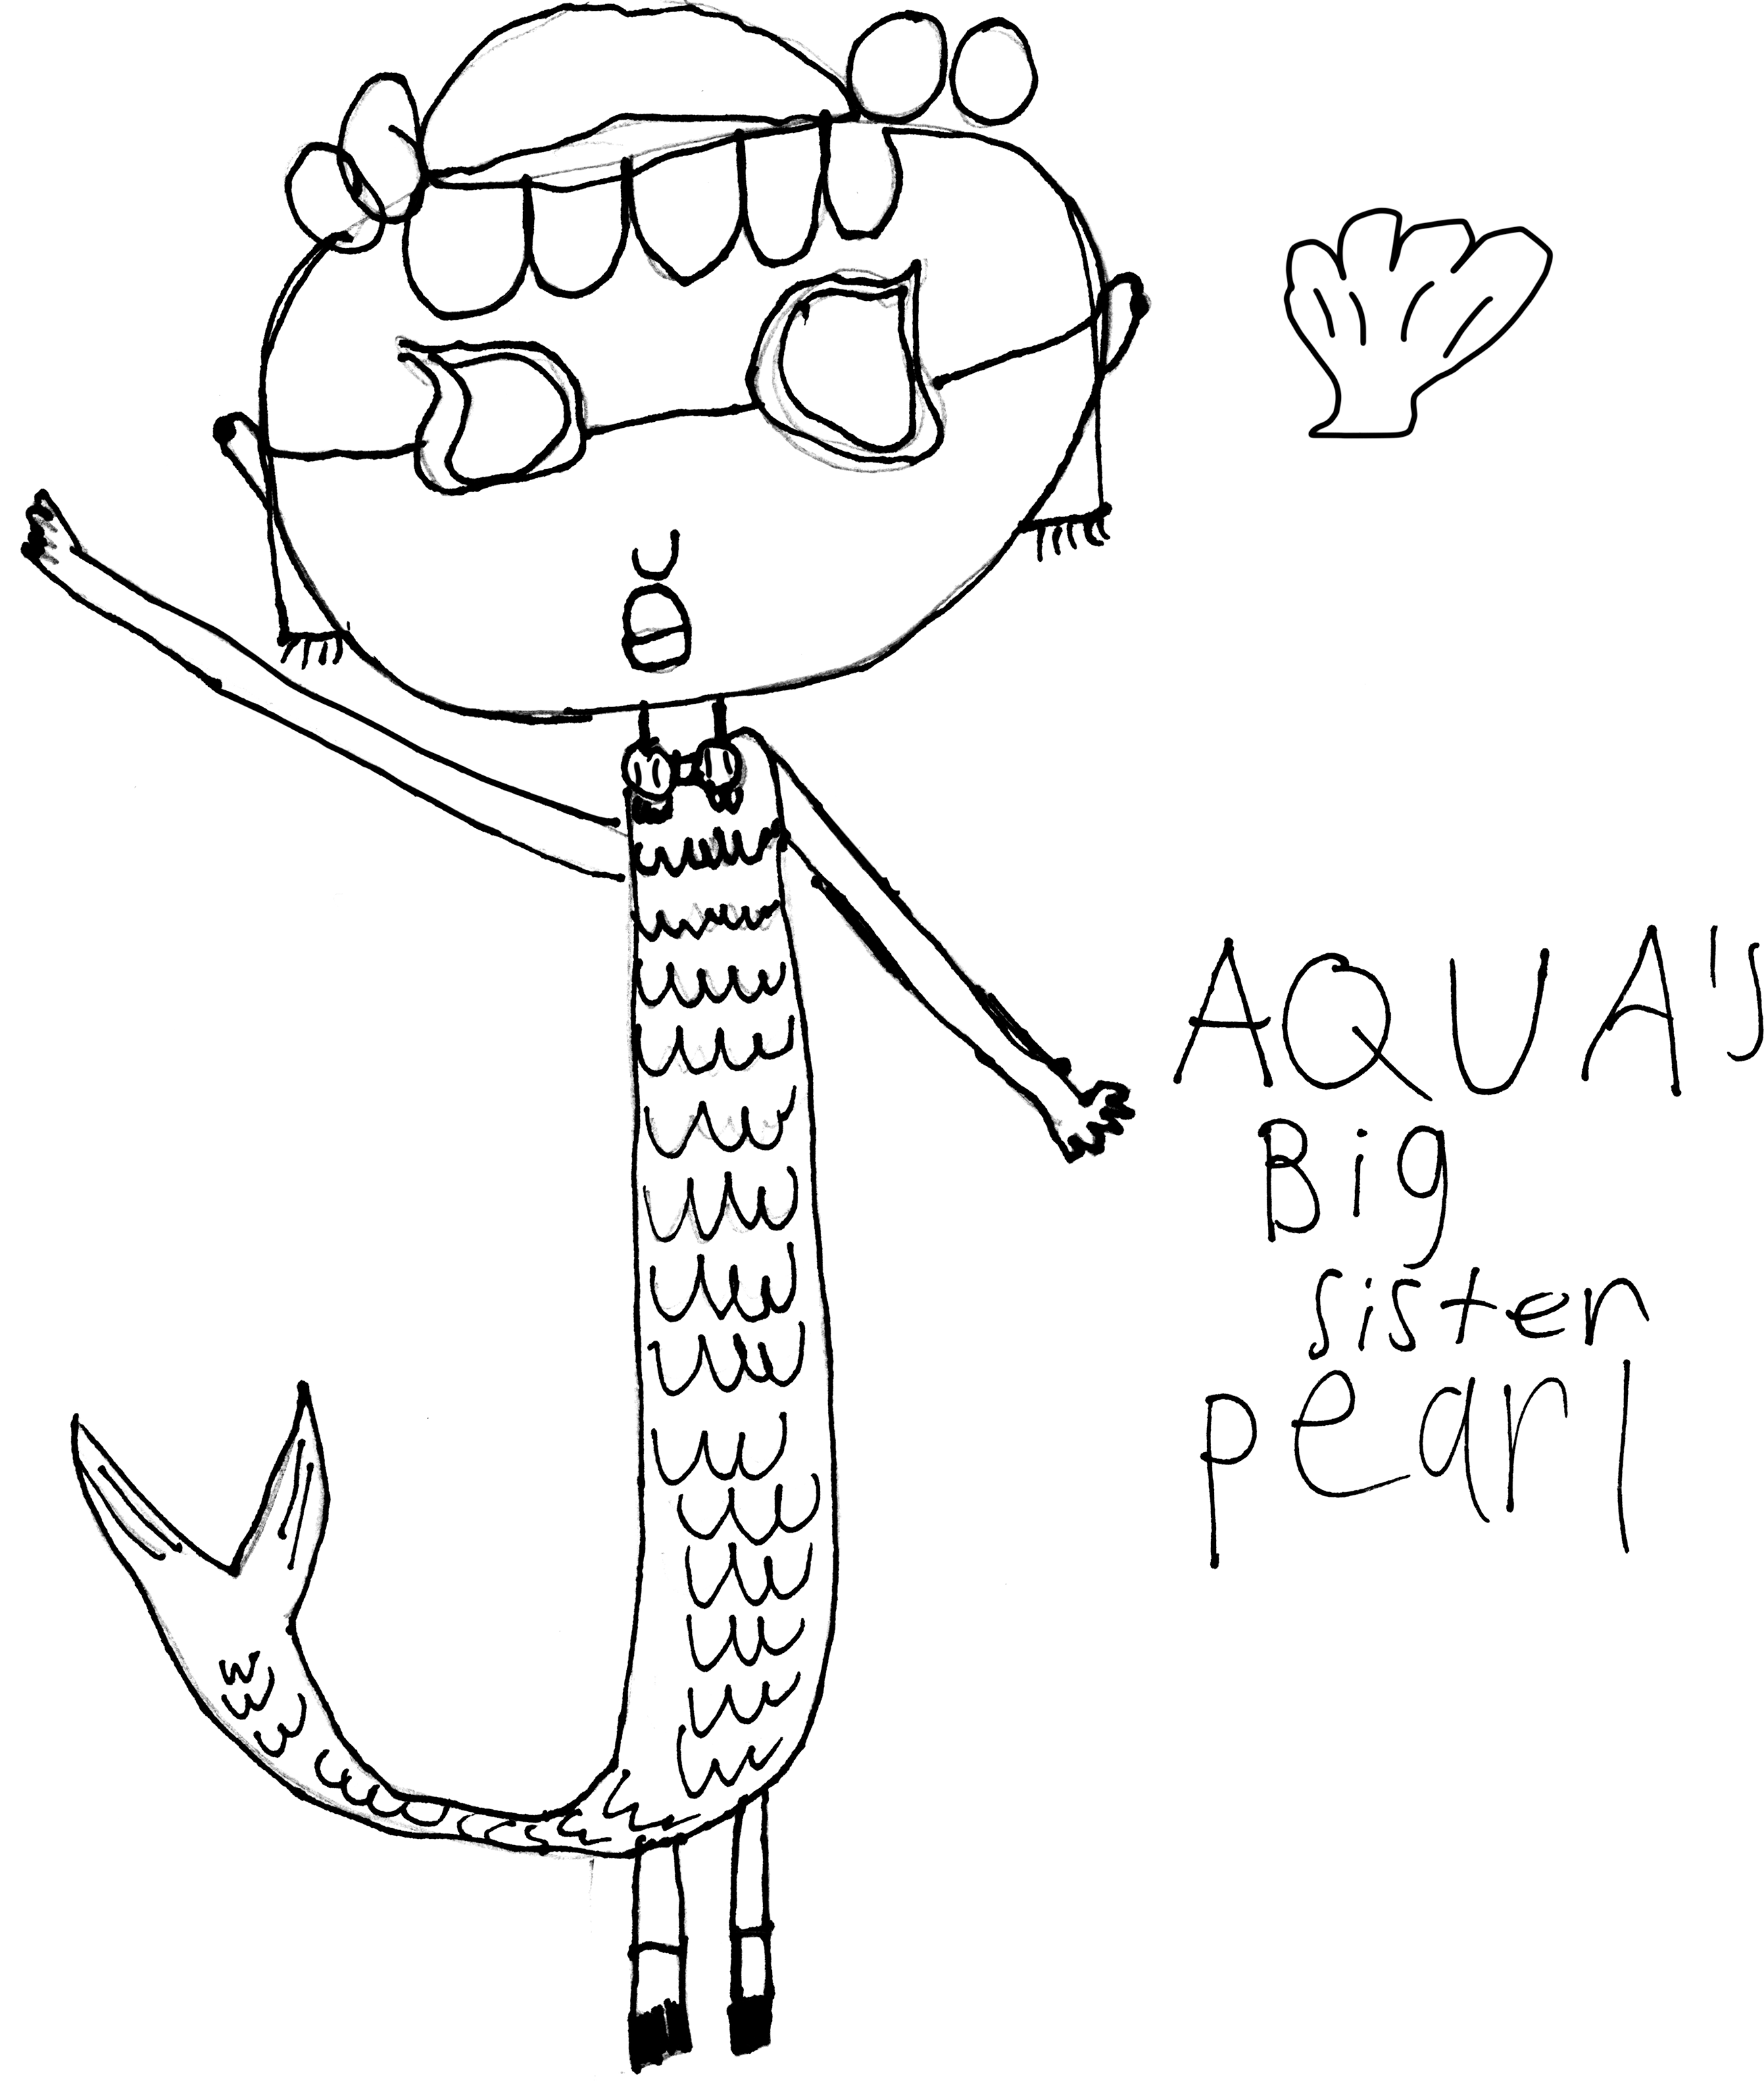 AQUA's
Big
sister
pearl